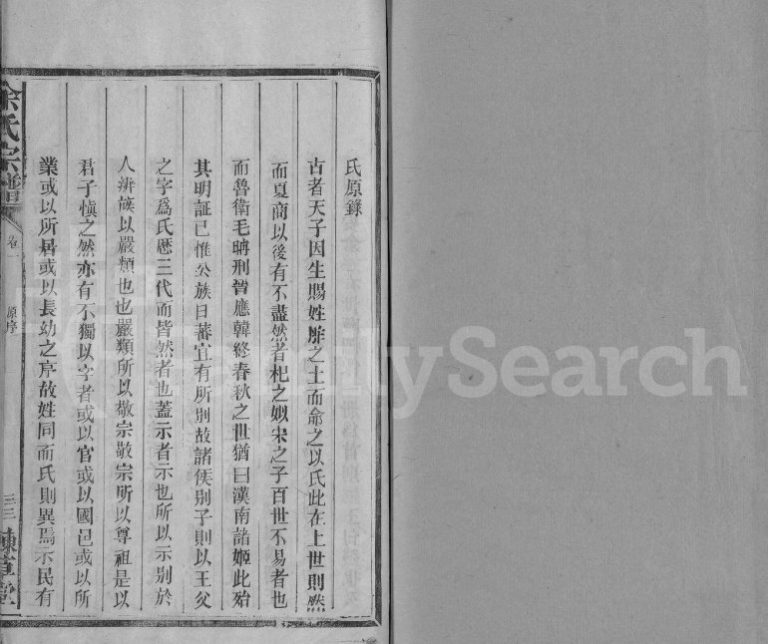 氏原錄
古者天子因生賜姓胙之土而命之以氏此在上世則然
而夏商以後有不盡然者杞之姒宋之子百世不易者也
而魯衛毛聃刑晉應韓終春秋之世猶曰漢南諸姬此殆
其明証已惟公族日蕃宜有所別故諸侯别子則以王父
之字爲氏歷三代而皆然者也蓋示者示也所以示别於
人辨族以嚴類也也嚴類所以敬宗敬宗所以尊祖是以
君子愼之然亦有不獨以字者或以官或以國邑或以所
業或以所居或以長幼之序故姓同而氏則異焉示民有
余氏宗譜
卷一
原序
三三
堂
FamilySearch